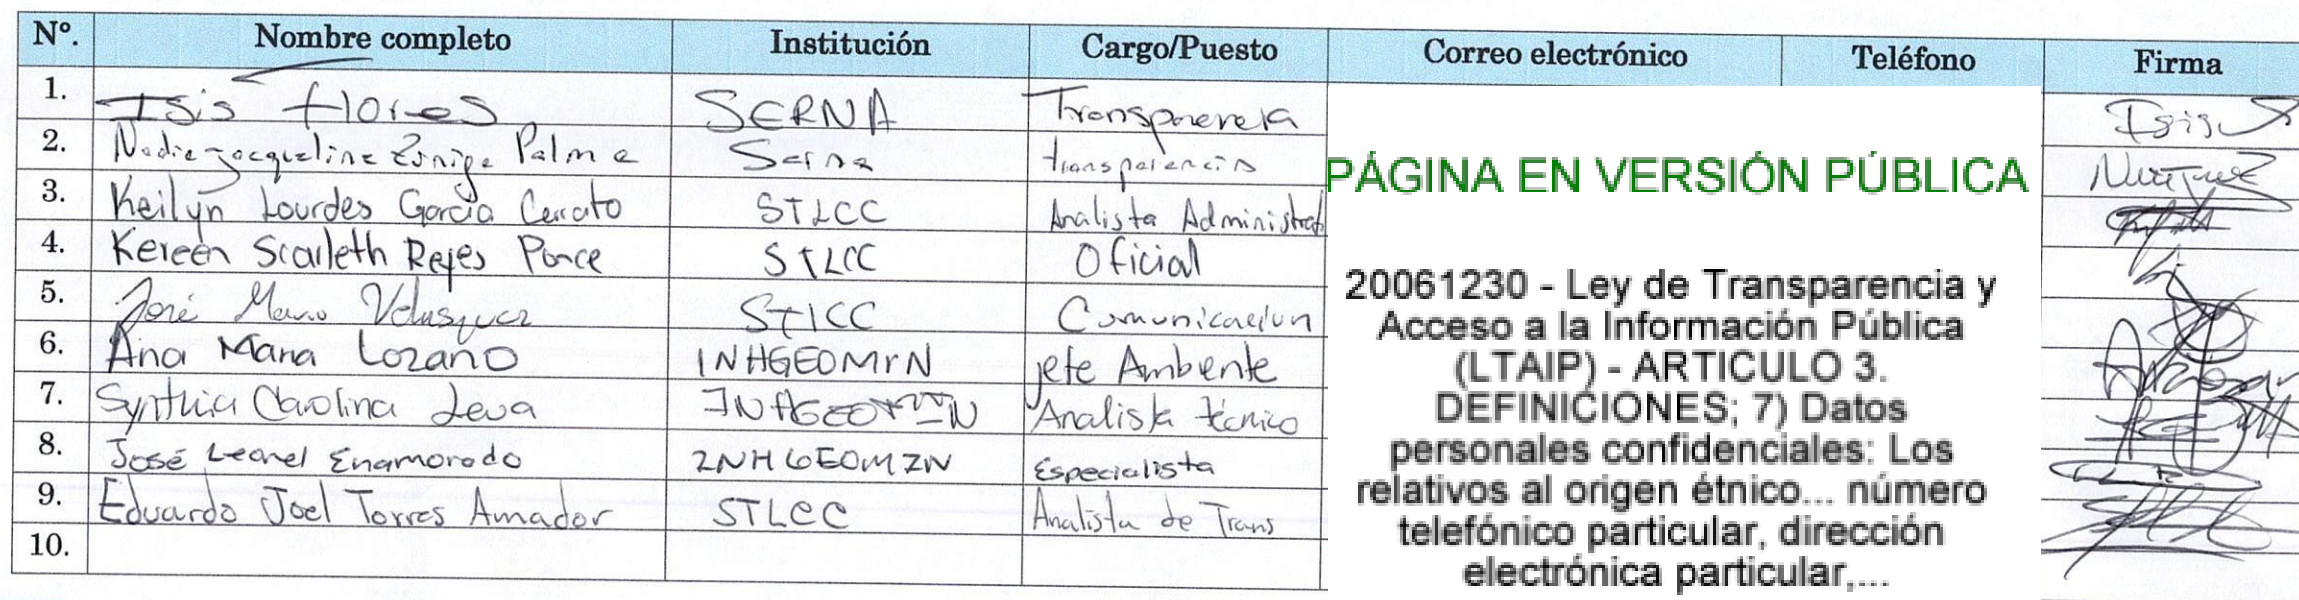 Nº. Nombre completo Institución Cargo/Puesto Correo electrónico Teléfono Firma
1. Isis Flores SERNA Transparencia Isis
2. Nadie Jacqueline Zúniga Palma Serna transparencia
3. Keilyn Lourdes García Cerrato STLCC Analista Administrat
4. Kereen Scarleth Reyes Ponce STLCC Oficial
5. José Mario Velasquez STLCC Comunicacion
6. Ana Maria Lozano INHGEOMIN jefe Ambiente
7. Synthia Carolina Leva INHGEOMIN Analista técnico
8. José Leonel Enamorado INHGEOMIN Especialista
9. Eduardo Joel Torres Amador STLCC Analista de Trans
10.
PÁGINA EN VERSIÓN PÚBLICA
20061230 - Ley de Transparencia y
Acceso a la Información Pública
(LTAIP) - ARTICULO 3.
DEFINICIONES; 7) Datos
personales confidenciales: Los
relativos al origen étnico... número
telefónico particular, dirección
electrónica particular,...